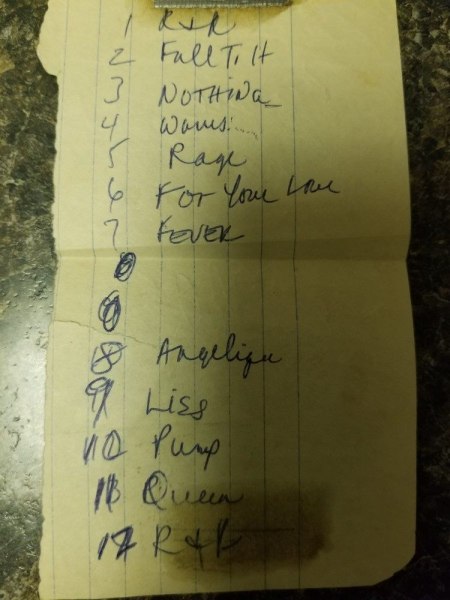 1 R&R
2 Fall T. It
3 NOTHING
4 Waves
5 Rage
6 For Your Love
7 FEVER
8 Angelique
9 Lies
10 Pump
11 Queen
12 R&R